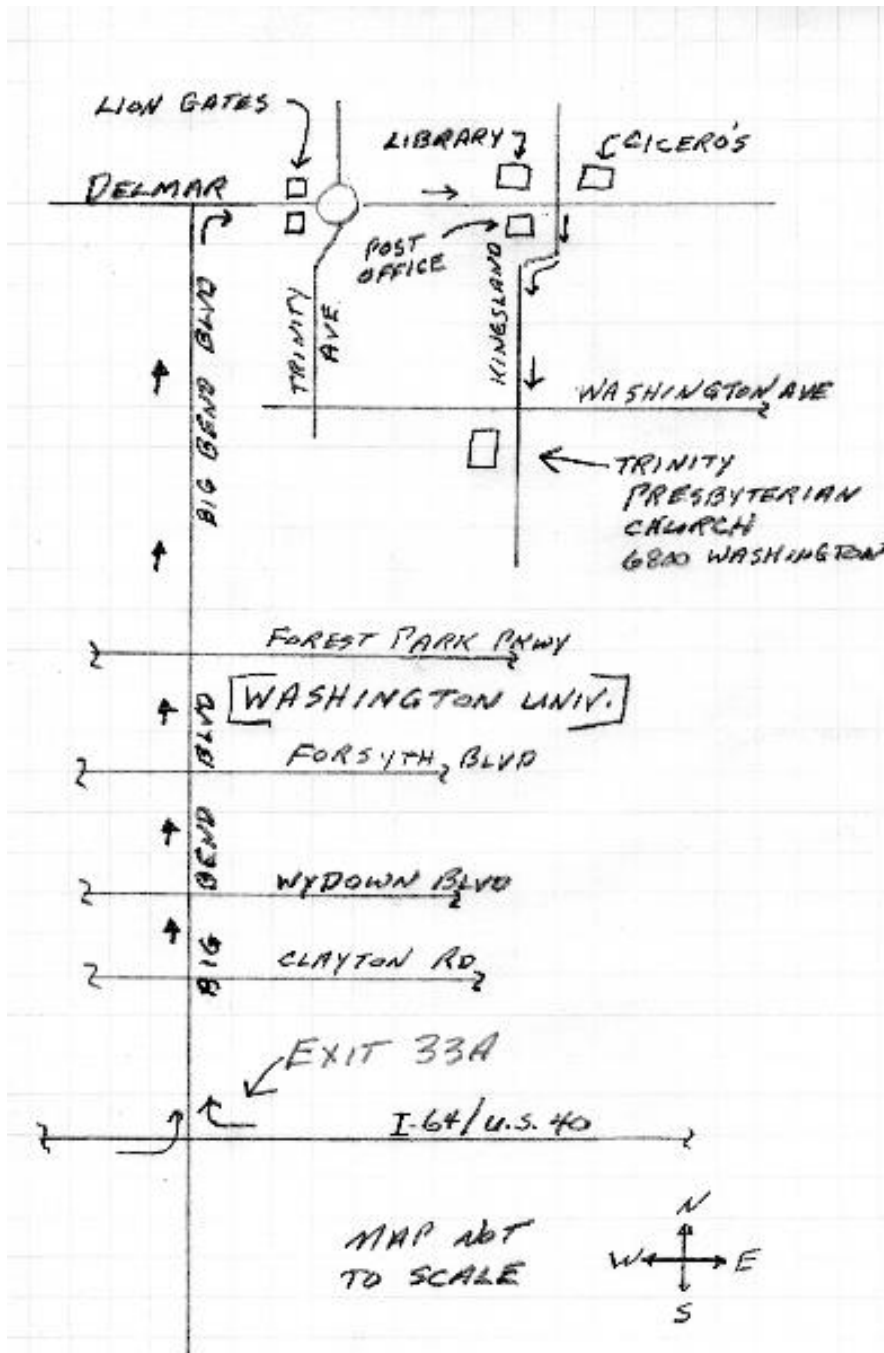 LION GATES
LIBRARY
CICERO'S
DELMAR
POST
OFFICE
BIG BEND BLVD
TRINITY
AVE
KINGSLAND
WASHINGTON AVE
TRINITY
PRESBYTERIAN
CHURCH
6800 WASHINGTON
FOREST PARK PKWY
[WASHINGTON UNIV.]
FORSYTH BLVD
WYDOWN BLVD
BIG BEND BLVD
CLAYTON RD
EXIT 33A
I-64/U.S. 40
MAP NOT
TO SCALE
N
W E
S